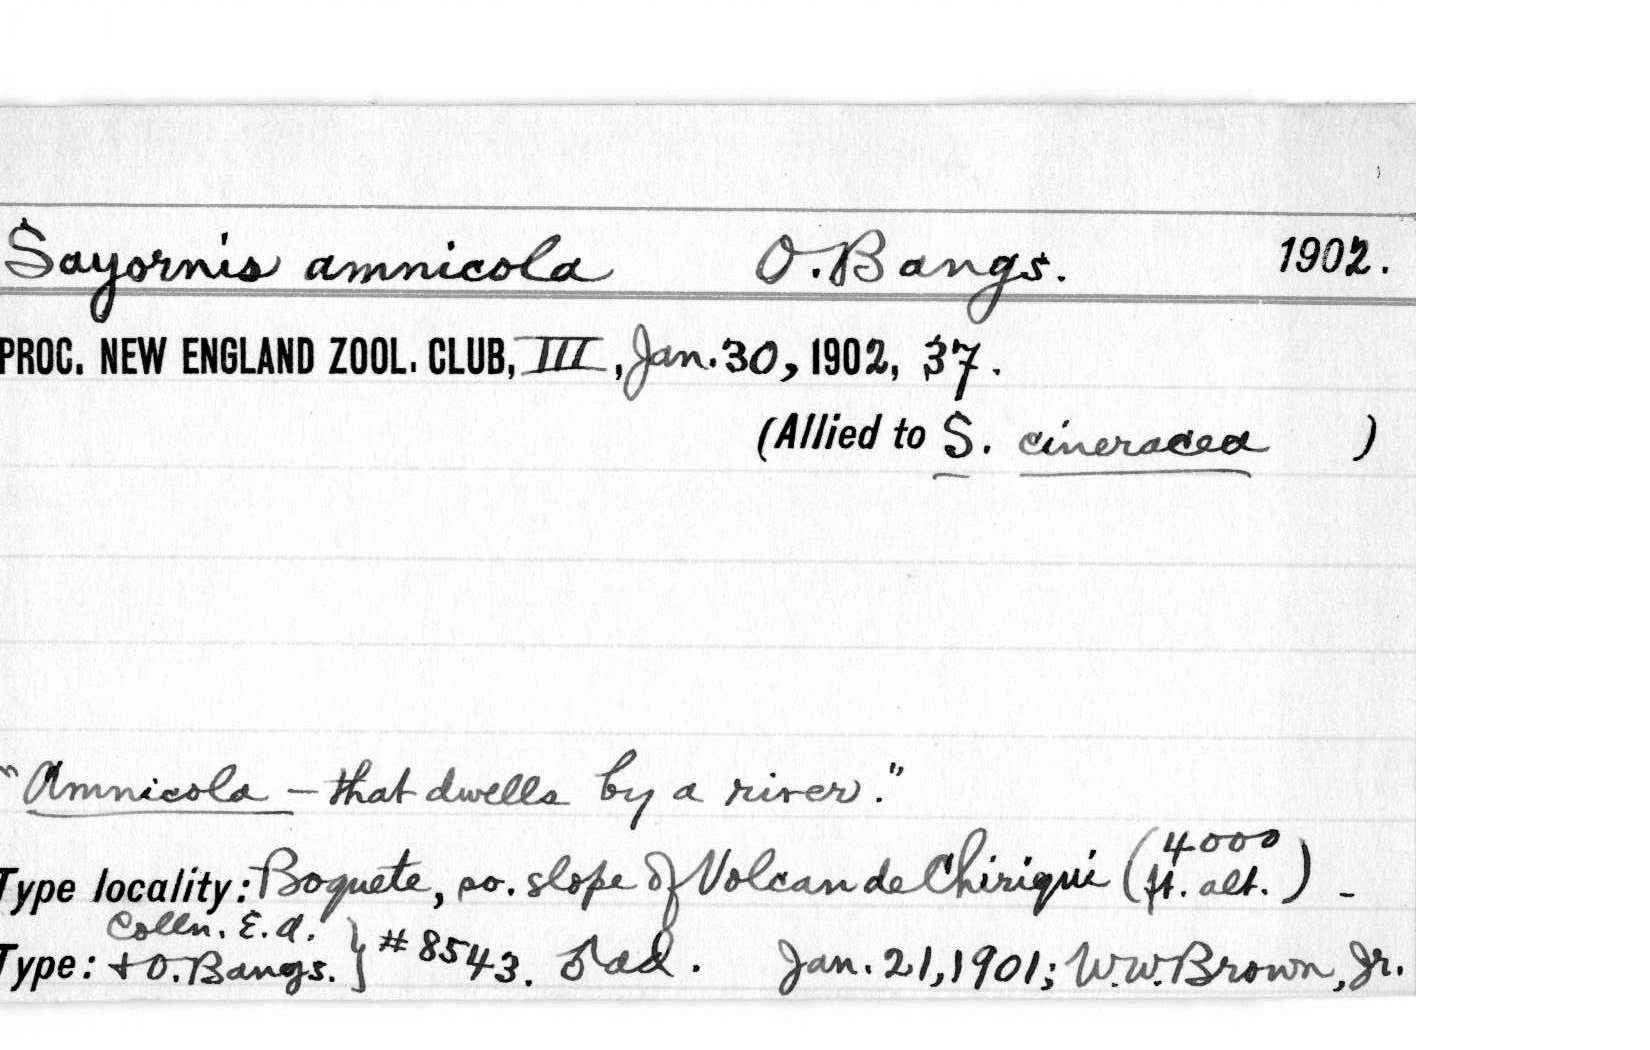 Sayornis amnicola O. Bangs. 1902.
PROC. NEW ENGLAND ZOOL. CLUB, III, Jan. 30, 1902, 37.
(Allied to S. cineracea )
"Amnicola – that dwells by a river."
Type locality: Boquete, so. slope of Volcan de Chiriqui (4000 ft. alt.) -
Type: Colln. E. A. + O. Bangs. } #8543. ♂ ad. Jan. 21, 1901; W.W. Brown, Jr.